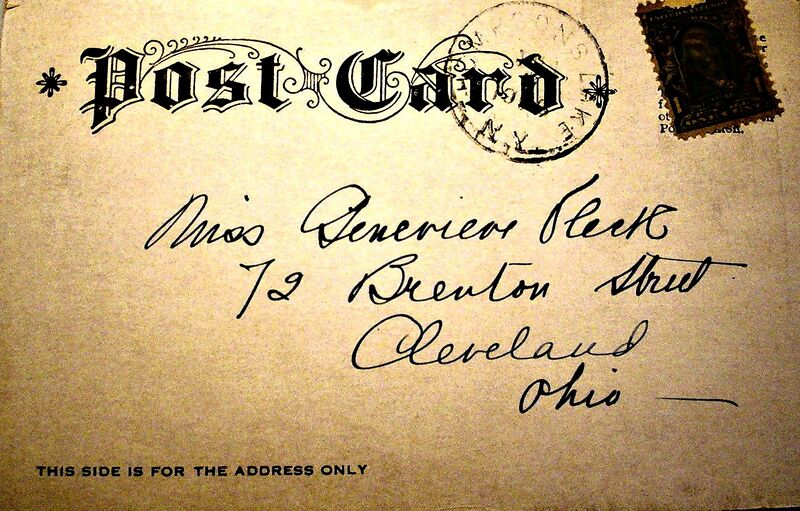 Post Card
LAKE
N.Y.
Miss Genevieve
72 Brenton Street
Cleveland
Ohio
THIS SIDE IS FOR THE ADDRESS ONLY